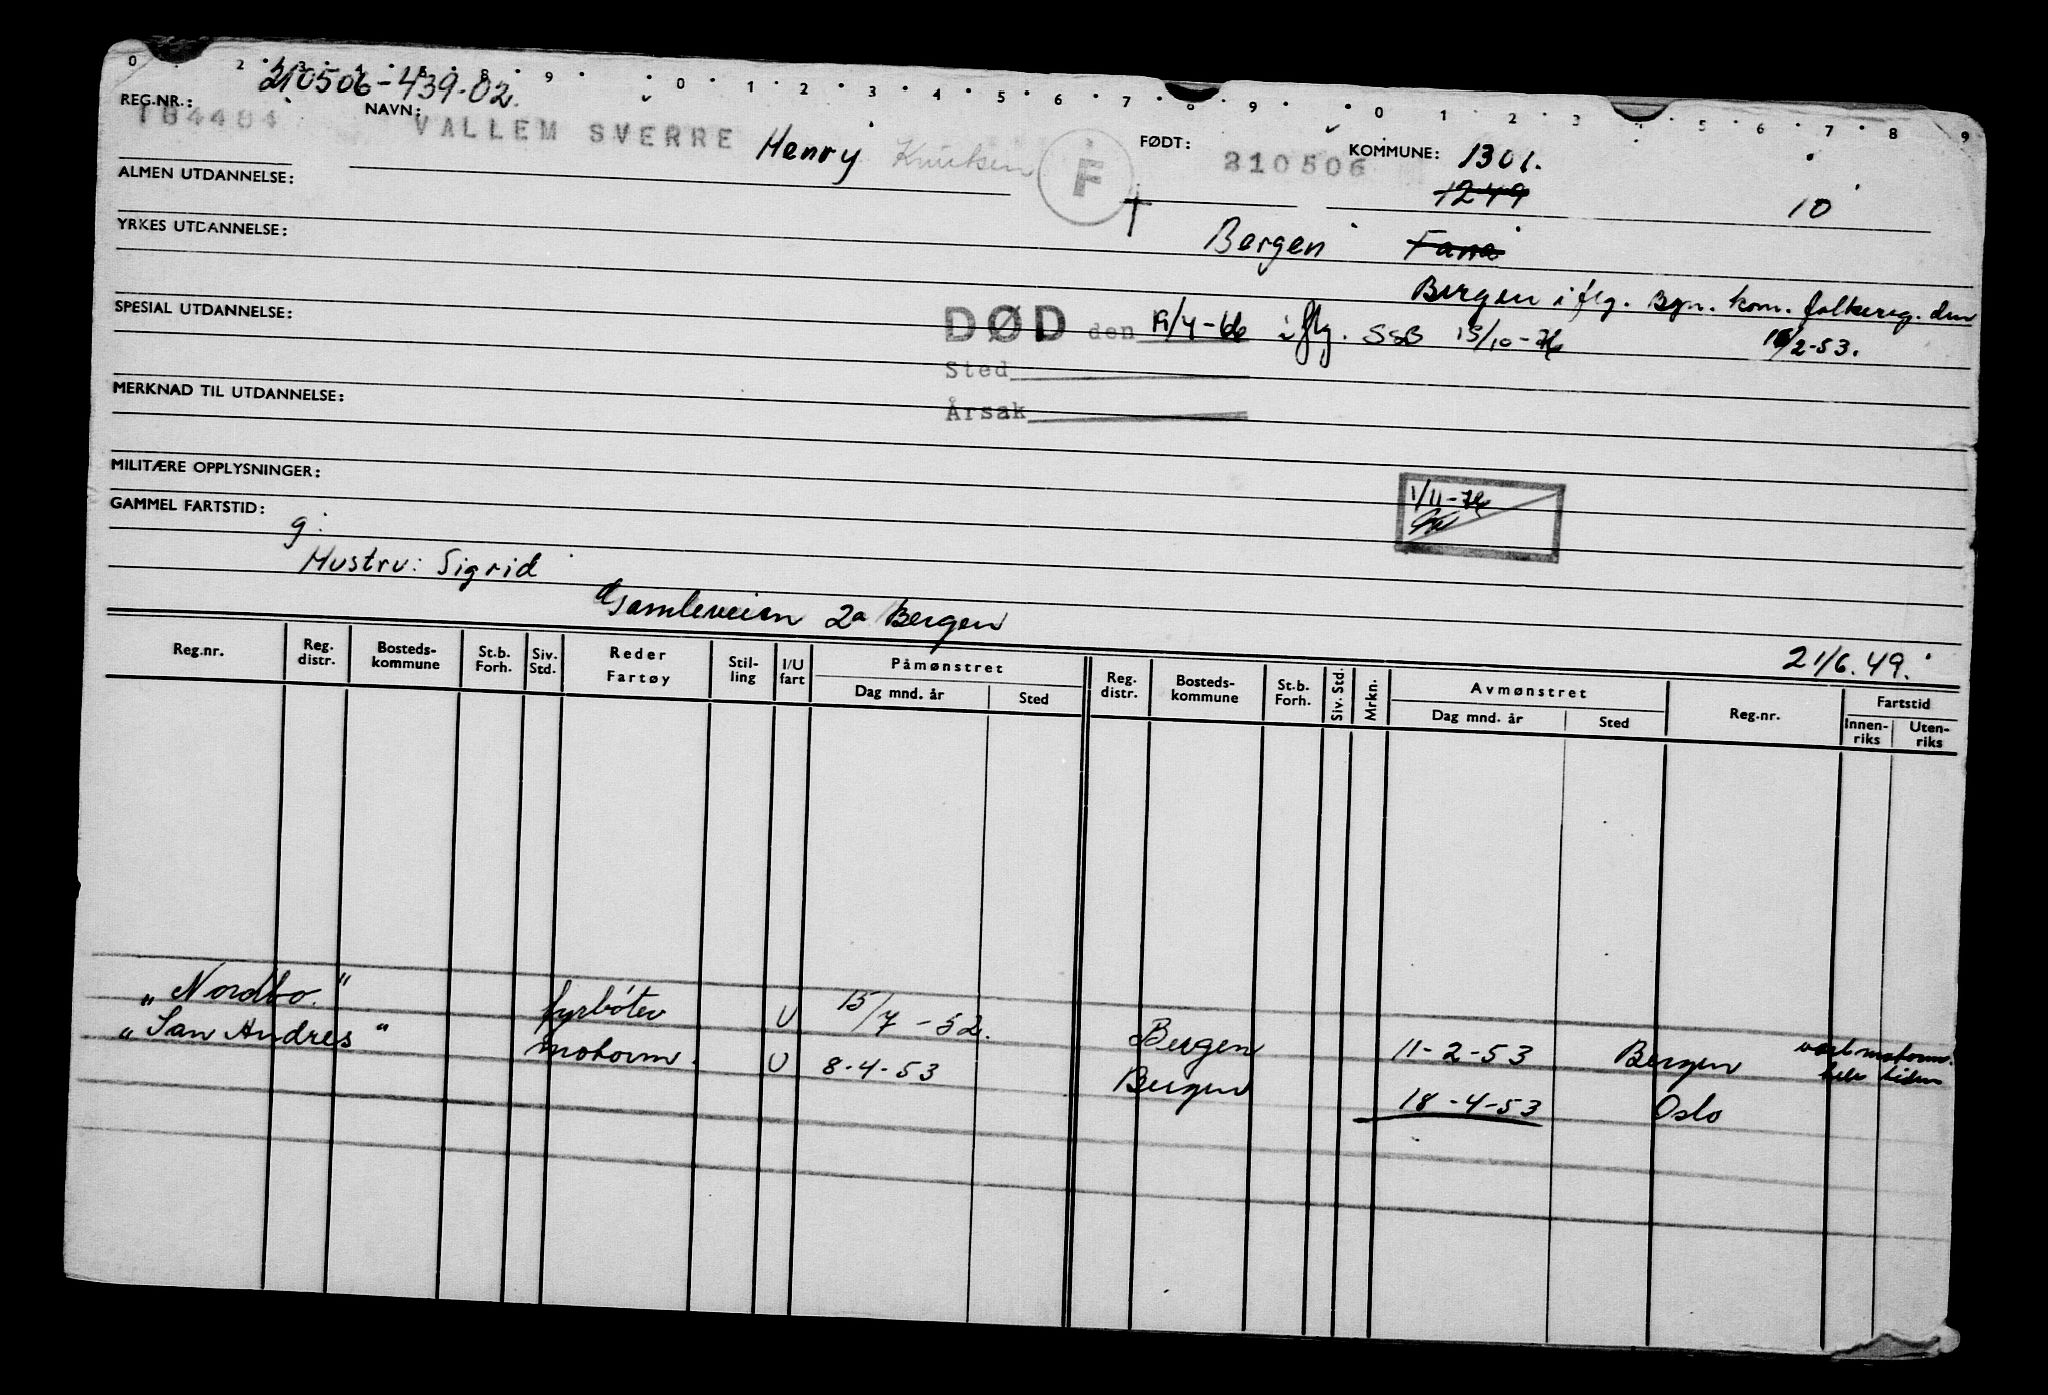 0 2 3 4 8 9 0 1 2 3 4 5 6 7 8 9 0 1 2 3 4 5 6 7 8 9
210506-439-02.
REG.NR.: 184484 NAVN: VALLEM SVERRE Henry Knutsen F FØDT: 210506 KOMMUNE: 1301.
1249 10
ALMEN UTDANNELSE:
YRKES UTDANNELSE: Bergen Fana
Bergen i flg. Bgn. kom. folkereg. den
SPESIAL UTDANNELSE: DØD den 19/4-66 i flg. SSB 15/10-76 /2-53.
Sted
MERKNAD TIL UTDANNELSE: Årsak
MILITÆRE OPPLYSNINGER: 1/11-76
GAMMEL FARTSTID:
g:
Hustru: Sigrid
Gamleveien 2a Bergen
21/6.49.
Reg.nr. Reg. distr. Bosteds-kommune St.b. Forh. Siv. Std. Reder Fartøy Stil-ling I/U fart Påmønstret Dag mnd. år Sted Reg. distr. Bosteds-kommune St.b. Forh. Siv. Std. Mrkn. Avmønstret Dag mnd. år Sted Reg.nr. Fartstid Innen-riks Uten-riks
"Nordbo." fyrbøter U 15/7-52. Bergen 11-2-53 Bergen vært motorm. hele tiden
"San Andres" motorm. U 8-4-53 Bergen 18-4-53 Oslo